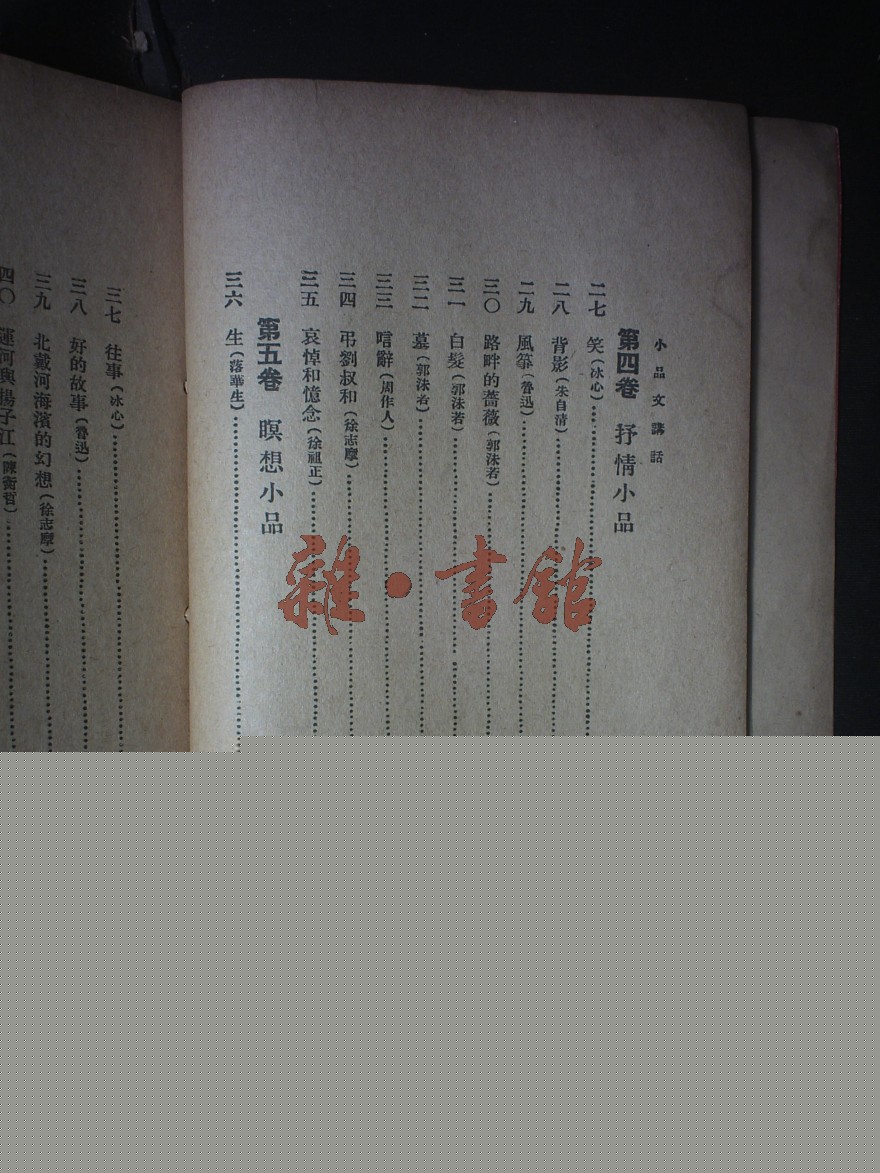 小品文講話
第四卷 抒情小品
二七 笑(冰心)
二八 背影(朱自清)
二九 風箏(魯迅)
三〇 路畔的薔薇(郭沫若)
三一 白髮(郭沫若)
三二 墓(郭沫若)
三三 唁辭(周作人)
三四 弔劉叔和(徐志摩)
三五 哀悼和憶念(徐祖正)
第五卷 瞑想小品
三六 生(落華生)
三七 往事(冰心)
三八 好的故事(魯迅)
三九 北戴河海濱的幻想(徐志摩)
四〇 運河與揚子江(陳衡哲)
雜·書館